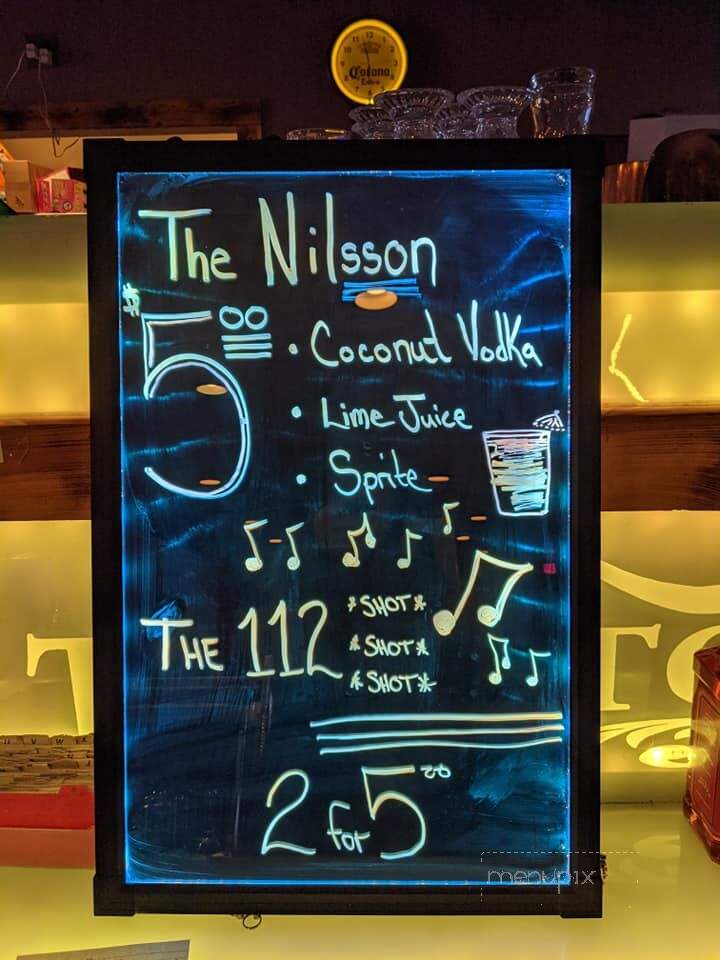 Corona
Extra
The Nilsson
$5.00
• Coconut Vodka
• Lime Juice
• Sprite
The 112
*SHOT*
*SHOT*
*SHOT*
2 for 5.00
menupix